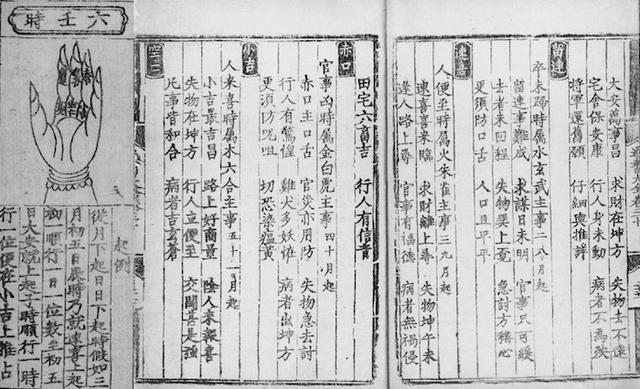 大安萬事昌 求財在坤方 失物去不遠
宅舍保安康 行人身未動 病者不為殃
將軍還舊願 仔細與推詳
留連
卒未歸時屬水玄武主事二八月起
留連事難成 求謀日未明 官事只可緩
去者未回程 失物巽上覓 急討方稱心
更須防口舌 人口且平平
速喜
人便至時屬火朱雀主事三九月起
速喜喜來臨 求財離上尋 失物坤午未
逢人路上尋 官事有福德 病者無禍侵
田宅六畜吉 行人有信音
赤口
官事凶時屬金白虎主事四十月起
赤口主口舌 官災亦用防 失物急去討
行人有驚惶 雞犬多妖怪 病者出坤方
更須防咒咀 切恐染瘟黃
小吉
人來喜時屬木六合主事五十一月起
小吉最吉昌 路上好商量 陰人來報喜
失物在坤方 行人立便至 交關甚是強
凡事皆和合 病者告玄蒼
空亡
六壬時
起例
從月下起日日下起時假如三
月初五日辰時乃就速喜上起
初一順行一日一位數至初五
日大安就上起子時順行一時
行一位便在小吉上推占